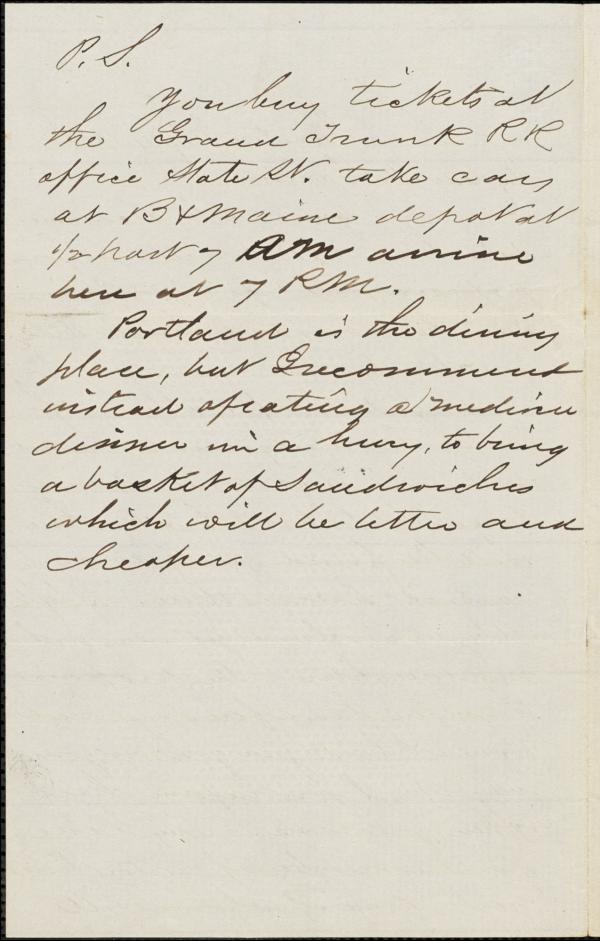 P.S.
You buy tickets at
the Grand Trunk RR
office State St. take cars
at B & Maine depot at
1/2 past 7 AM arrive
here at 7 P.M.
Portland is the dining
place, but I recommend
instead of eating a
dinner in a hurry, to bring
a basket of Sandwiches
which will be better and
cheaper.